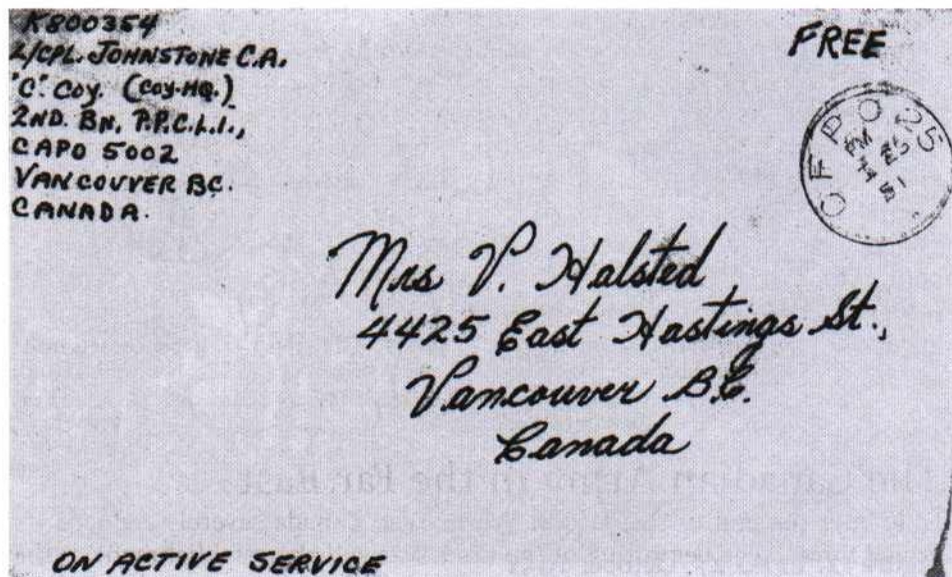 K800354
L/CPL. JOHNSTONE C.A.
"C". COY. (COY-HQ.)
2ND. BN. P.P.C.L.I.,
CAPO 5002
VANCOUVER BC.
CANADA.
FREE
CFPO 25
PM
51
Mrs V. Halsted
4425 East Hastings St.,
Vancouver B.C.
Canada
ON ACTIVE SERVICE